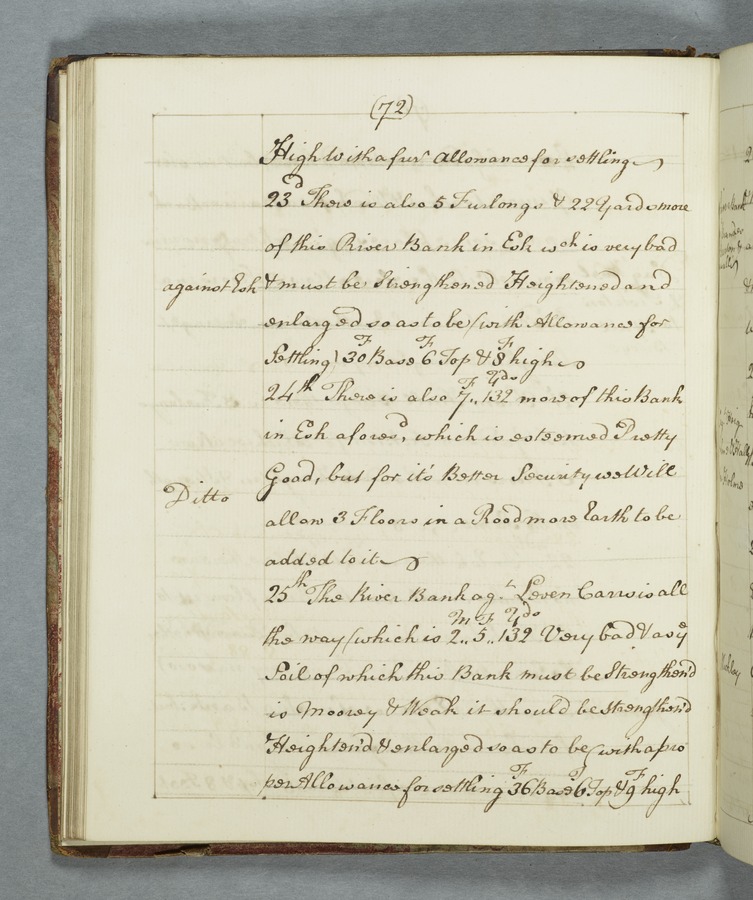 (72)
High With a furr Allowance for settling
23d There is also 5 Furlongs & 22 Yards more
of this River Bank in Esk wch is very bad
against Esk & must be Strengthened Heightened and
enlarged so as to be (with Allowance for
Settling) 30F Base 6F Top & 8F high
24th There is also 7F,, 132Yds more of this Bank
in Esk aforesd, which is esteemed Pretty
Good, but for it's Better Security we Will
Ditto
allow 3 Floors in a Rood more Earth to be
added to it
25th The River Bank agt Leven Carrs is all
the way (which is 2M,, 5F,, 132Yds Very bad & as ye
Soil of which this Bank must be Strengthen'd
is Moorey & Weak it should be strengthen'd
Heighten'd & enlarged so as to be (with a pro
per Allowance for settling 36F Base 6F Top & 9F high